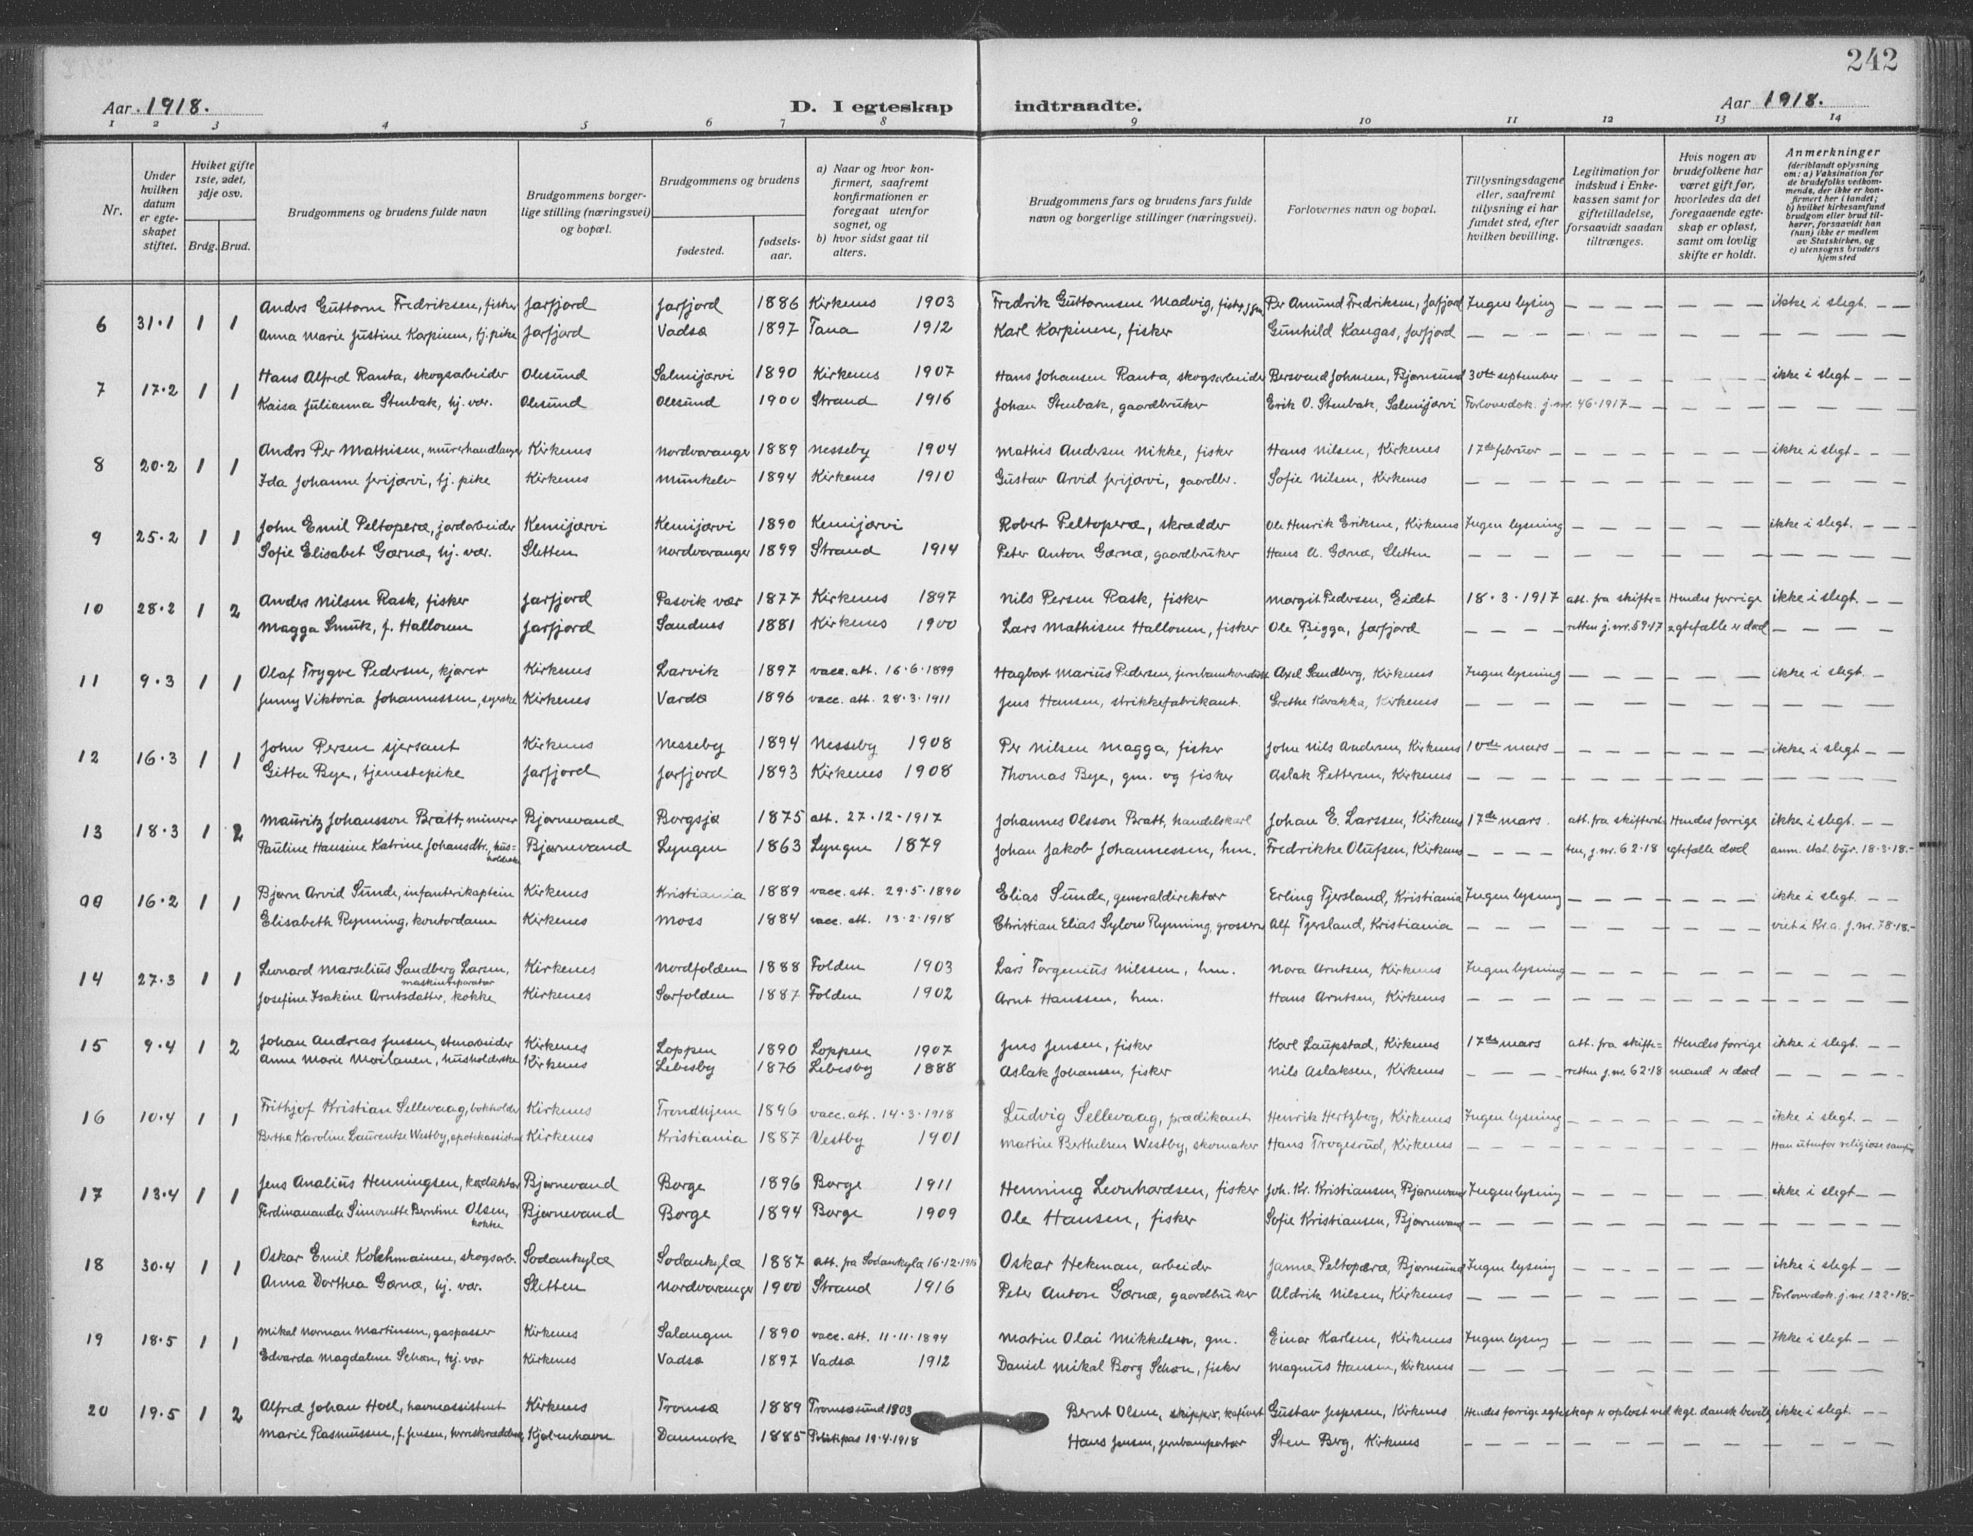 242
Aar 1918. D. I egteskap indtraadte. Aar 1918.
1 2 3 4 5 6 7 8 9 10 11 12 13 14
Nr.
Under hvilken datum er egteskapet stiftet.
Hvilket gifte 1ste, 2det, 3dje osv.
Brdg. Brud.
Brudgommens og brudens fulde navn
Brudgommens borgerlige stilling (næringsvei) og bopæl.
Brudgommens og brudens
fødested. fødselsaar.
a) Naar og hvor konfirmert, saafremt konfirmationen er foregaat utenfor sognet, og
b) hvor sidst gaat til alters.
Brudgommens fars og brudens fars fulde navn og borgerlige stillinger (næringsvei).
Forlovernes navn og bopæl.
Tillysningsdagene eller, saafremt tillysning ei har fundet sted, efter hvilken bevilling.
Legitimation for indskud i Enkekassen samt for giftetilladelse, forsaavidt saadan tiltrænges.
Hvis nogen av brudefolkene har været gift før, hvorledes da det foregaaende egteskap er opløst, samt om lovlig skifte er holdt.
Anmerkninger
(deriblandt oplysning om: a) Vaksination for de brudefolks vedkommende, der ikke er konfirmert her i landet; b) hvilket kirkesamfund brudgom eller brud tilhører, forsaavidt han (hun) ikke er medlem av Statskirken, og c) utensogns bruders hjemsted
6 31.1 1 1 Anders Guttorm Fredriksen, fisker Jarfjord Jarfjord 1886 Kirkenes 1903 Fredrik Guttormsen Madvig, fisker, gm. Per Amund Fredriksen, Jarfjord Ingen lysing — — — — — ikke i slegt. — —
Anna Marie Justine Karpinen, tj. pike Jarfjord Vadsø 1897 Tana 1912 Karl Karpinen, fisker Gunhild Kangas, Jarfjord — — — — — —
7 17.2 1 1 Hans Alfred Ranta, skogsarbeider Olesund Salmijærvi 1890 Kirkenes 1907 Hans Johansen Ranta, skogsarbeider Bersvend Johnsen, Bjørnsund 30te september — — — — — ikke i slegt — — —
Kaisa Julianna Stenbak, hj. vær. Olesund Olesund 1900 Strand 1916 Johan Stenbak, gaardbruker Erik O. Stenbak, Salmijærvi Forloverdok. j. nr. 46.1917 — — — — —
8 20.2 1 1 Anders Per Mathisen, murerhandlanger Kirkenes Nordvaranger 1889 Nesseby 1904 Mathis Andersen Nikke, fisker Hans Nilsen, Kirkenes 17de februar — — — — — ikke i slegt — — —
Ida Johanne Jerijærvi, tj. pike Kirkenes Munkelv 1894 Kirkenes 1910 Gustav Arvid Jerijærvi, gaardbr. Sofie Nilsen, Kirkenes — — — — — —
9 25.2 1 1 John Emil Peltoperæ, jordarbeider Kemijærvi Kemijærvi 1890 Kemijærvi Robert Peltoperæ, skrædder Ole Henrik Eriksen, Kirkenes Ingen lysning — — — — — ikke i slegt. — — —
Sofie Elisabet Gærnæ, hj. vær. Sletten Nordvaranger 1899 Strand 1914 Peter Anton Gærnæ, gaardbruker Hans A. Gærnæ, Sletten — — — — — —
10 28.2 1 2 Anders Nilsen Rask, fisker Jarfjord Pasvik vær 1877 Kirkenes 1897 Nils Persen Rask, fisker Margit Pedersen, Eidet 18.3.1917 att. fra skifte= Hendes forrige ikke i slegt. — —
Magga Smuk, f. Halloren Jarfjord Sandnes 1881 Kirkenes 1900 Lars Mathisen Halloren, fisker Ole Bigga, Jarfjord — — — — retten j. nr. 59.17 egtefælle er død — — — —
11 9.3 1 1 Olaf Trygve Pedersen, kjører Kirkenes Larvik 1897 vacc. att. 16.6.1899 Hagbart Marius Pedersen, jernbanekonduktør Axel Sandberg, Kirkenes Ingen lysning — — — — — ikke i slegt. —
Jenny Viktoria Johannessen, syerske Kirkenes Vardø 1896 vacc. att. 28.3.1911 Jens Hansen, strikkefabrikant. Grethe Karakka, Kirkenes — — — — — —
12 16.3 1 1 John Persen sjersant Kirkenes Nesseby 1894 Nesseby 1908 Per Nilsen Magga, fisker John Nils Andersen, Kirkenes 10de mars — — — — — ikke i slegt — —
Gitta Bye, tjenestepike Jarfjord Jarfjord 1893 Kirkenes 1908 Thomas Bye, gm. og fisker Aslak Pettersen, Kirkenes — — — — — —
13 18.3 1 2 Mauritz Johansson Bratt, minerer Bjørnevand Borgsjø 1875 att. 27.12.1917 Johannes Olsson Bratt, handelskarl Johan E. Larssen, Kirkenes 17de mars. att. fra skifteret= Hendes forrige ikke i slegt — —
Pauline Hansine Katrine Johansdtr. hus= Bjørnevand Lyngen 1863 Lyngen 1879 Johan Jakob Johannessen, hm. Fredrikke Olufsen, Kirkenes — — — — ten, j. nr. 62.18 egtefælle død anm. stat. byr. 18.3.18.—
holderske
99 16.2 1 1 Bjørn Arvid Sunde, infanterikaptein Kirkenes Kristiania 1889 vacc. att. 29.5.1890 Elias Sunde, generaldirektør Erling Tjersland, Kristiania Ingen lysning — — — — — ikke i slegt. — —
Elisabeth Rynning, kontordame Kirkenes Moss 1884 vacc. att. 13.2.1918 Christian Elias Sylow Rynning, grosserer Alf Tjersland, Kristiania — — — — — viet i Kr.a. j. nr. 78.18.—
14 27.3 1 1 Leonard Marselius Sandberg Larsen, Kirkenes Nordfolden 1888 Folden 1903 Lars Torgenius Nilssen, hm. Nora Arntsen, Kirkenes Ingen lysning — — — — —
maskinreparatør
Josefine Isakine Arntsdatter, kokke Kirkenes Sørfolden 1887 Folden 1902 Arnt Hanssen, hm. Hans Arntsen, Kirkenes — — — — — —
15 9.4 1 2 Johan Andreas Jensen, stenarbeider Kirkenes Loppen 1890 Loppen 1907 Jens Jensen, fisker Karl Laupstad, Kirkenes 17de mars att. fra skifte= Hendes forrige ikke i slegt. — —
Anne Marie Moilanen, husholderske Kirkenes Lebesby 1876 Lebesby 1888 Aslak Johansen, fisker Nils Aslaksen, Kirkenes — — — — retten j. nr. 62.18 mand er død — — — —
16 10.4 1 1 Frithjof Kristian Sellevaag, bokholder Kirkenes Trondhjem 1896 vacc. att. 14.3.1918 Ludvig Sellevaag, prædikant Henrik Hertzberg, Kirkenes Ingen lysning — — — — — ikke i slegt. — —
Bertha Karoline Laurentse Westby, apotekassistent Kirkenes Kristiania 1887 Vestby 1901 Martin Berthelsen Westby, skomaker Hans Trøgesrud, Kirkenes — — — — — Han utenfor religiøse samfund
17 13.4 1 1 Jens Analius Henningsen, konduktør Bjørnevand Borge 1896 Borge 1911 Henning Leonhardsen, fisker Joh. Kr. Kristiansen, Bjørnevand Ingen lysning — — — — — ikke i slegt — —
Ferdinananda Simonette Berntine Olsen, Bjørnevand Borge 1894 Borge 1909 Ole Hansen, fisker Sofie Kristiansen, Bjørnevand — — — — — —
kokke
18 30.4 1 1 Oskar Emil Kolehmainen, skogsarb. Sodankylæ Sodankylæ 1887 att. fra Sodankyla 16.12.1916 Oskar Hekman, arbeider Janne Peltoperæ, Bjørnsund Ingen lysing — — — — — ikke i slegt — —
Anna Dorthea Gærnæ, hj. vær. Sletten Nordvaranger 1900 Strand 1916 Peter Anton Gærnæ, gaardbruker Aldrik Nilsen, Kirkenes — — — — — Forloverdok. j. nr. 122.18.—
19 18.5 1 1 Mikal Norman Martinsen, gaspasser Kirkenes Salangen 1890 vacc. att. 11.11.1894 Martin Olai Mikkelsen, gm. Einar Karlsen, Kirkenes Ingen lysing — — — — — Ikke i slegt — —
Edvarda Magdalene Schøn, hj. vær Kirkenes Vadsø 1897 Vadsø 1912 Daniel Mikal Borg Schøn, fisker Magnus Hansen, Kirkenes — — — — — —
20 19.5 1 2 Alfred Johan Hoel, havneassistent Kirkenes Tromsø 1889 Tromsøsund 1903 Bernt Olsen, skipper, Gustav Jespersen, Kirkenes Hendes forrige egteskap er opløst ved kgl. dansk bevilg. ikke i slegt. — —
Marie Rasmussen, f. Jensen, Kjøbenhavn Danmark 1885 Politipas 19.4.1918 Hans Jensen, jernbaneportør Sten Berg, Kirkenes — — — — — —